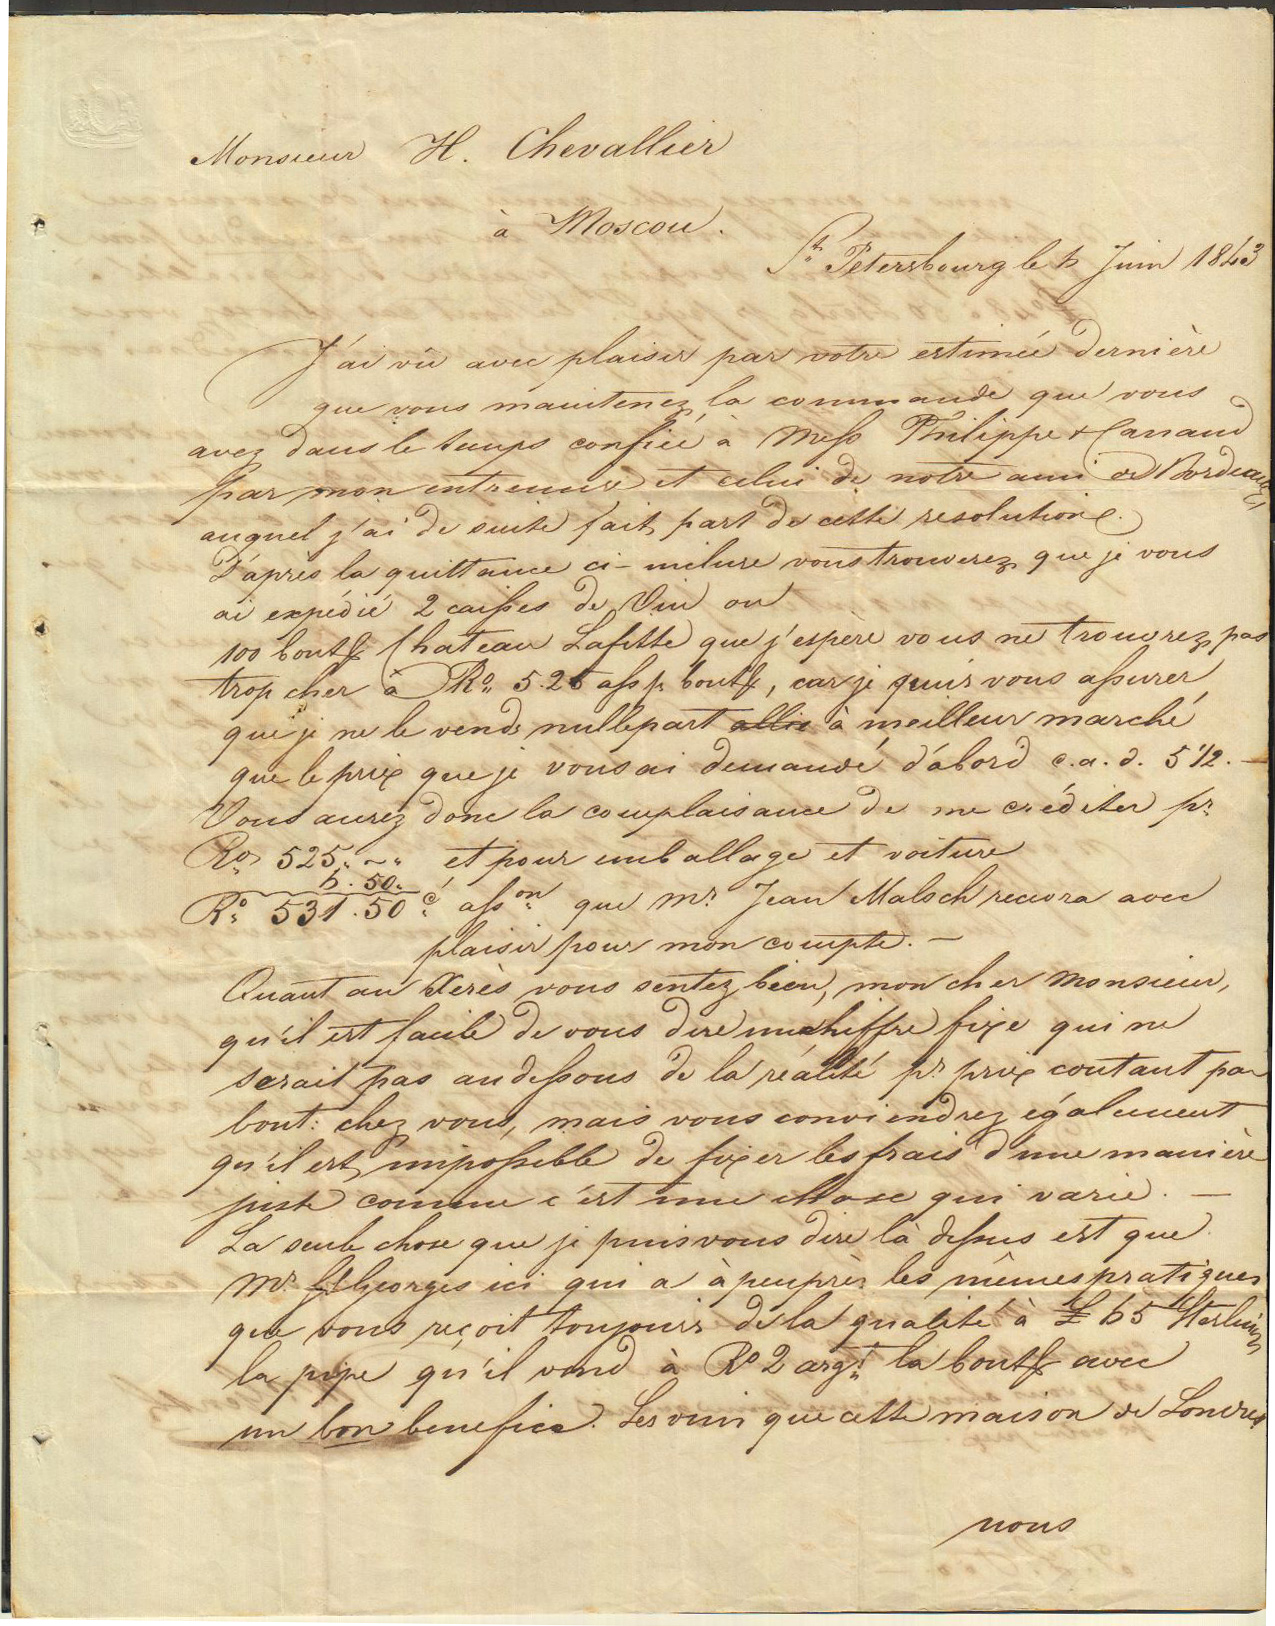 Monsieur H. Chevallier
à Moscou.
St. Petersbourg le 6 Juin 1843
J'ai vû avec plaisir par votre estimée dernière
que vous maintenez la commande que vous
avez dans le temps confiée à Mess Philippe & Canaud
par mon entremise et celui de notre ami de Bordeaux,
auquel j'ai de suite fait part de cette resolution.
D'après la quittance ci-incluse vous trouverez que je vous
ai expédié 2 caisses de Vin ou
100 bout Chateau Lafitte que j'espère vous ne trouverez pas
trop cher à Ro. 5.25 ass p. bout, car je puis vous assurer
que je ne le vends nullepart à meilleur marché
que le prix que je vous ai demandé d'abord c.a.d. 5 1/2. —
Vous aurez donc la complaisance de me créditer pr
Ro. 525. ~ . et pour emballage et voiture
6. 50.
Ro. 531. 50 c. asson que Mr. Jean Malsch recevra avec
plaisir pour mon compte. —
Quant au Xerès vous sentez bien, mon cher Monsieur,
qu'il est facile de vous dire un chiffre fixe qui ne
serait pas audessous de la réalité pr. prix coutant par
bout: chez vous, mais vous conviendrez également
qu'il est impossible de fixer les frais d'une manière
juste comme c'est une chose qui varie. —
La seule chose que je puis vous dire là dessus est que
Mr. St Georges ici qui a à peu près les mêmes pratiques
que vous reçoit toujours de la qualité à £ 65 Sterling
la pipe qu'il vend à Ro 2 argt. la bout avec
un bon benefice. Les vins que cette maison de Londres
nous